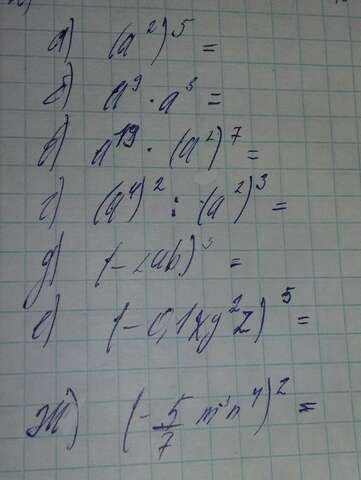 а) (a²)⁵ =
б) a⁹ · a³ =
в) a¹⁹ · (a²)⁷ =
г) (a⁴)² : (a²)³ =
д) (-2ab)³ =
е) (-0,1xy²z)⁵ =
ж) (-5/7 m n⁴)² =